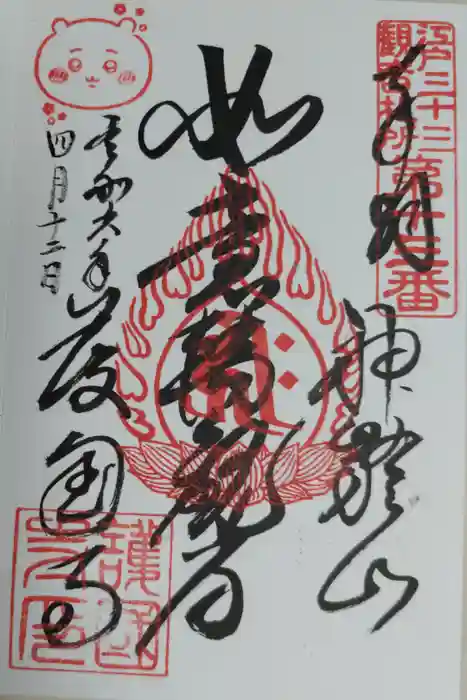 江戸三十三
観音札所
第十三番
奉拝
神齢山
如意輪観音
護国寺
令和六年
四月十二日
護国